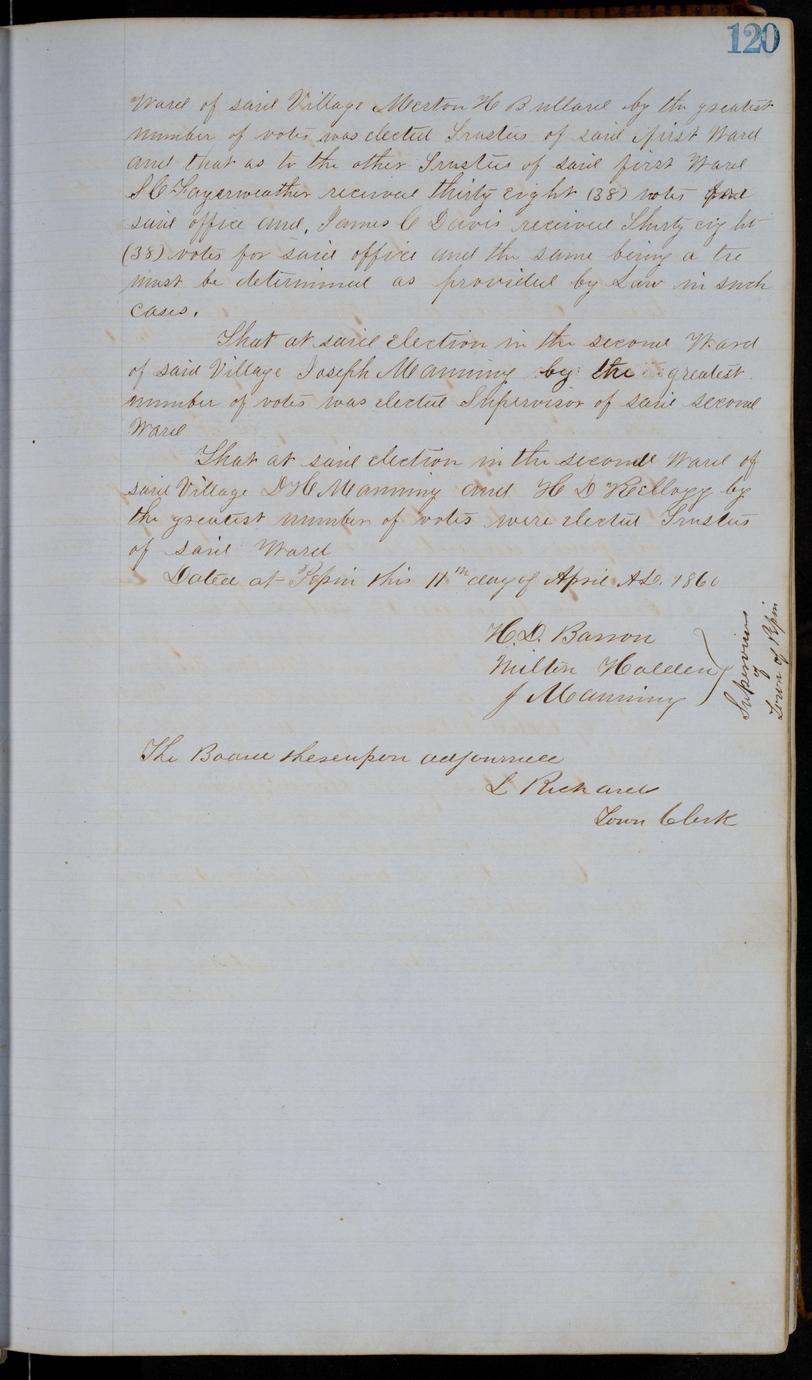 120
Ward of said Village Merton H Bullard by the greatest
number of votes was elected Trustee of said first Ward
and that as to the other Trustee of said first Ward
S C Fayerweather received thirty eight (38) votes for
said office and, James C Davis received Thirty eight
(38) votes for said office and the same being a tie
must be determined as provided by Law in such
cases.
That at said election in the second Ward
of said Village Joseph Manning by the greatest
number of votes was elected Supervisor of said second
Ward
That at said election in the second Ward of
said Village D H Manning and H D Kellogg by
the greatest number of votes were elected Trustees
of said Ward
Dated at Pepin this 11th day of April A.D. 1860
H. D. Barron
Milton Holden
J Manning
Supervisors
of
Town of Pepin
The Board thereupon adjourned
L Richards
Town Clerk